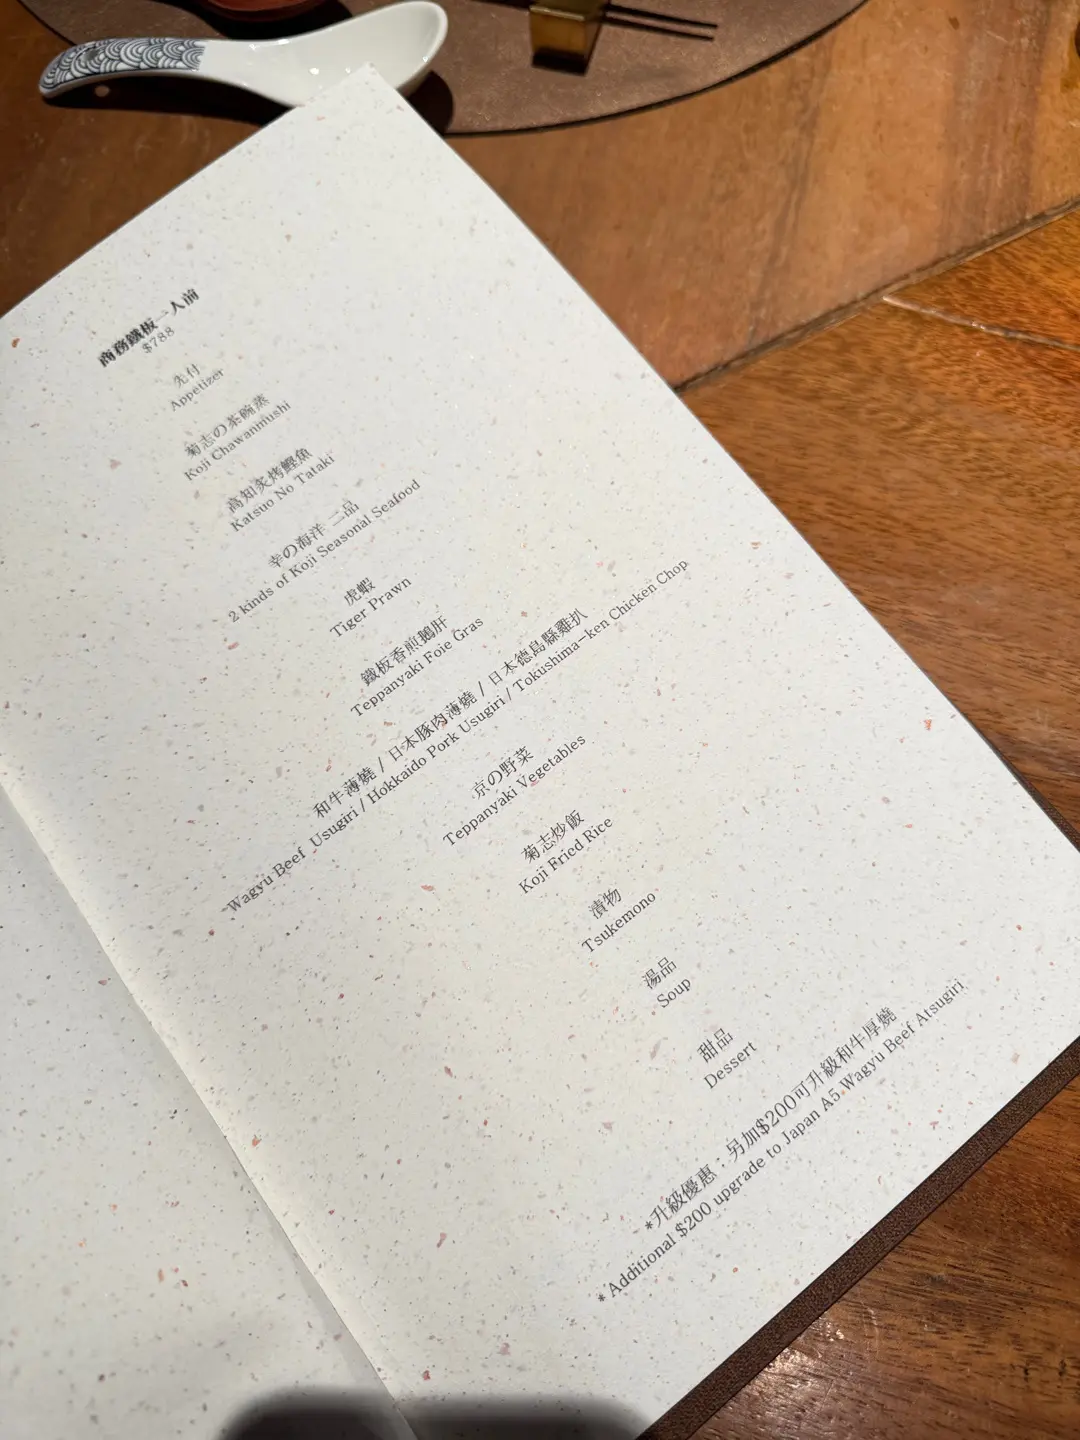 商務鐵板一人前
$788
先付
Appetizer
菊志の茶碗蒸
Koji Chawanmushi
高知炙烤鰹魚
Katsuo No Tataki
幸の海洋 二品
2 kinds of Koji Seasonal Seafood
虎蝦
Tiger Prawn
鐵板香煎鵝肝
Teppanyaki Foie Gras
和牛薄燒 / 日本豚肉薄燒 / 日本德島縣雞扒
Wagyu Beef Usugiri / Hokkaido Pork Usugiri / Tokushima-ken Chicken Chop
京の野菜
Teppanyaki Vegetables
菊志炒飯
Koji Fried Rice
漬物
Tsukemono
湯品
Soup
甜品
Dessert
*升級優惠：另加$200可升級和牛厚燒
* Additional $200 upgrade to Japan A5 Wagyu Beef Atsugiri